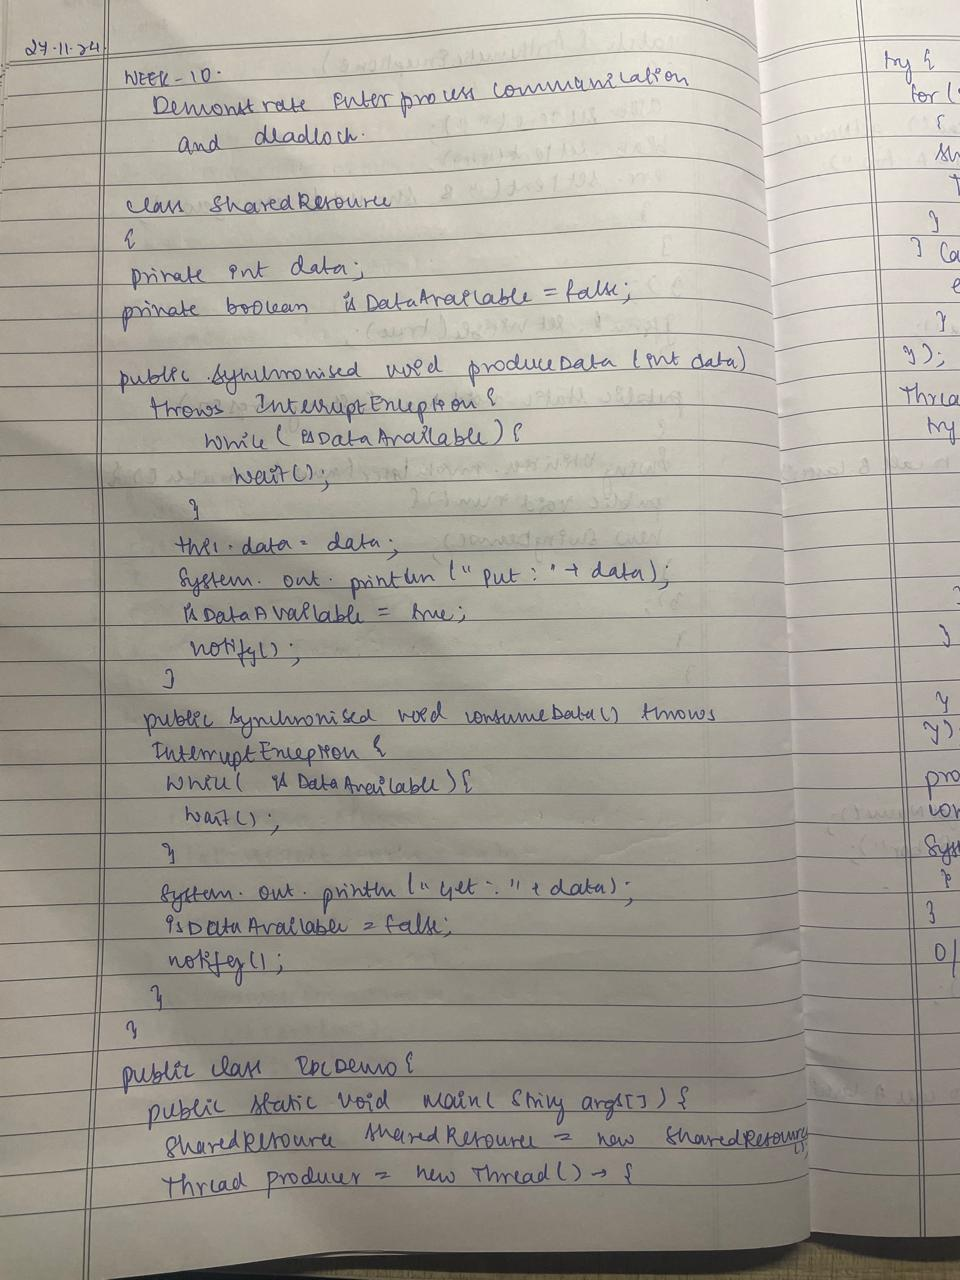 27.11.24
WEEK-10.
Demonstrate Inter process communication
and deadlock.
class SharedResource
{
private int data;
private boolean isDataAvailable = false;
public synchronised void produceData (int data)
throws InterruptException {
while ( isDataAvailable ) {
wait();
}
this.data = data;
System. out. println (" Put : " + data);
isDataAvailable = true;
notify();
}
public synchronised void consumeData() throws
InterruptException {
while( isDataAvailable ) {
wait();
}
System. out. println (" Get : " + data);
isDataAvailable = false;
notify();
}
}
public class IpcDemo {
public static void main( String args[] ) {
SharedResource sharedResource = new SharedResource
();
Thread producer = new Thread () → {
try {
for (
{
sh
T
}
} Ca
e
}
});
Threa
try
}
}
});
pro
con
Syst
}
}
O/